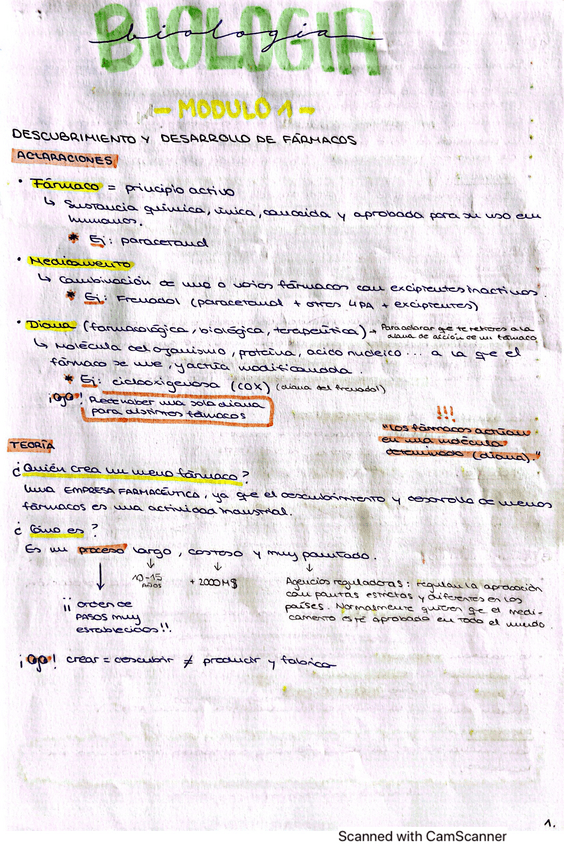 BIOLOGIA
biologia
- MODULO 1 -
DESCUBRIMIENTO Y DESARROLLO DE FÁRMACOS
ACLARACIONES
• Fármaco = principio activo
↳ Sustancia química, única, conocida y aprobada para su uso en
humanos.
* Ej: paracetamol
• Medicamento
↳ Combinación de uno o varios fármacos con excipientes inactivos.
* Ej: Frenadol (paracetamol + otros 4PA + excipientes)
• Diana (farmacológica, biológica, terapéutica) → Para aclarar que te refieres a la
diana de acción de un fármaco
↳ Molécula del organismo, proteína, acido nucleico... a la que el
fármaco se une, y actúa modificandola.
* Ej: ciclooxigenasa (COX) (diana del frenadol)
¡Ojo! Puede haber una sola diana
para distintos fármacos
!!!
"Los fármacos actúan
en una molécula
determinada (diana)."
TEORÍA
¿Quién crea un nuevo fármaco?
Una EMPRESA FARMACÉUTICA, ya que el descubrimiento y desarrollo de nuevos
fármacos es una actividad industrial.
¿Cómo es?
Es un proceso largo, costoso y muy pautado.
10-15
AÑOS
+ 2000M$
Agencias reguladoras: regulan la aprobación
con pautas estrictas y diferentes en los
países. Normalmente quieren que el medi-
camento esté aprobado en todo el mundo.
¡¡ orden de
PASOS muy
establecidos!!
¡Ojo! crear = descubrir ≠ producir y fabricar
1.
Scanned with CamScanner